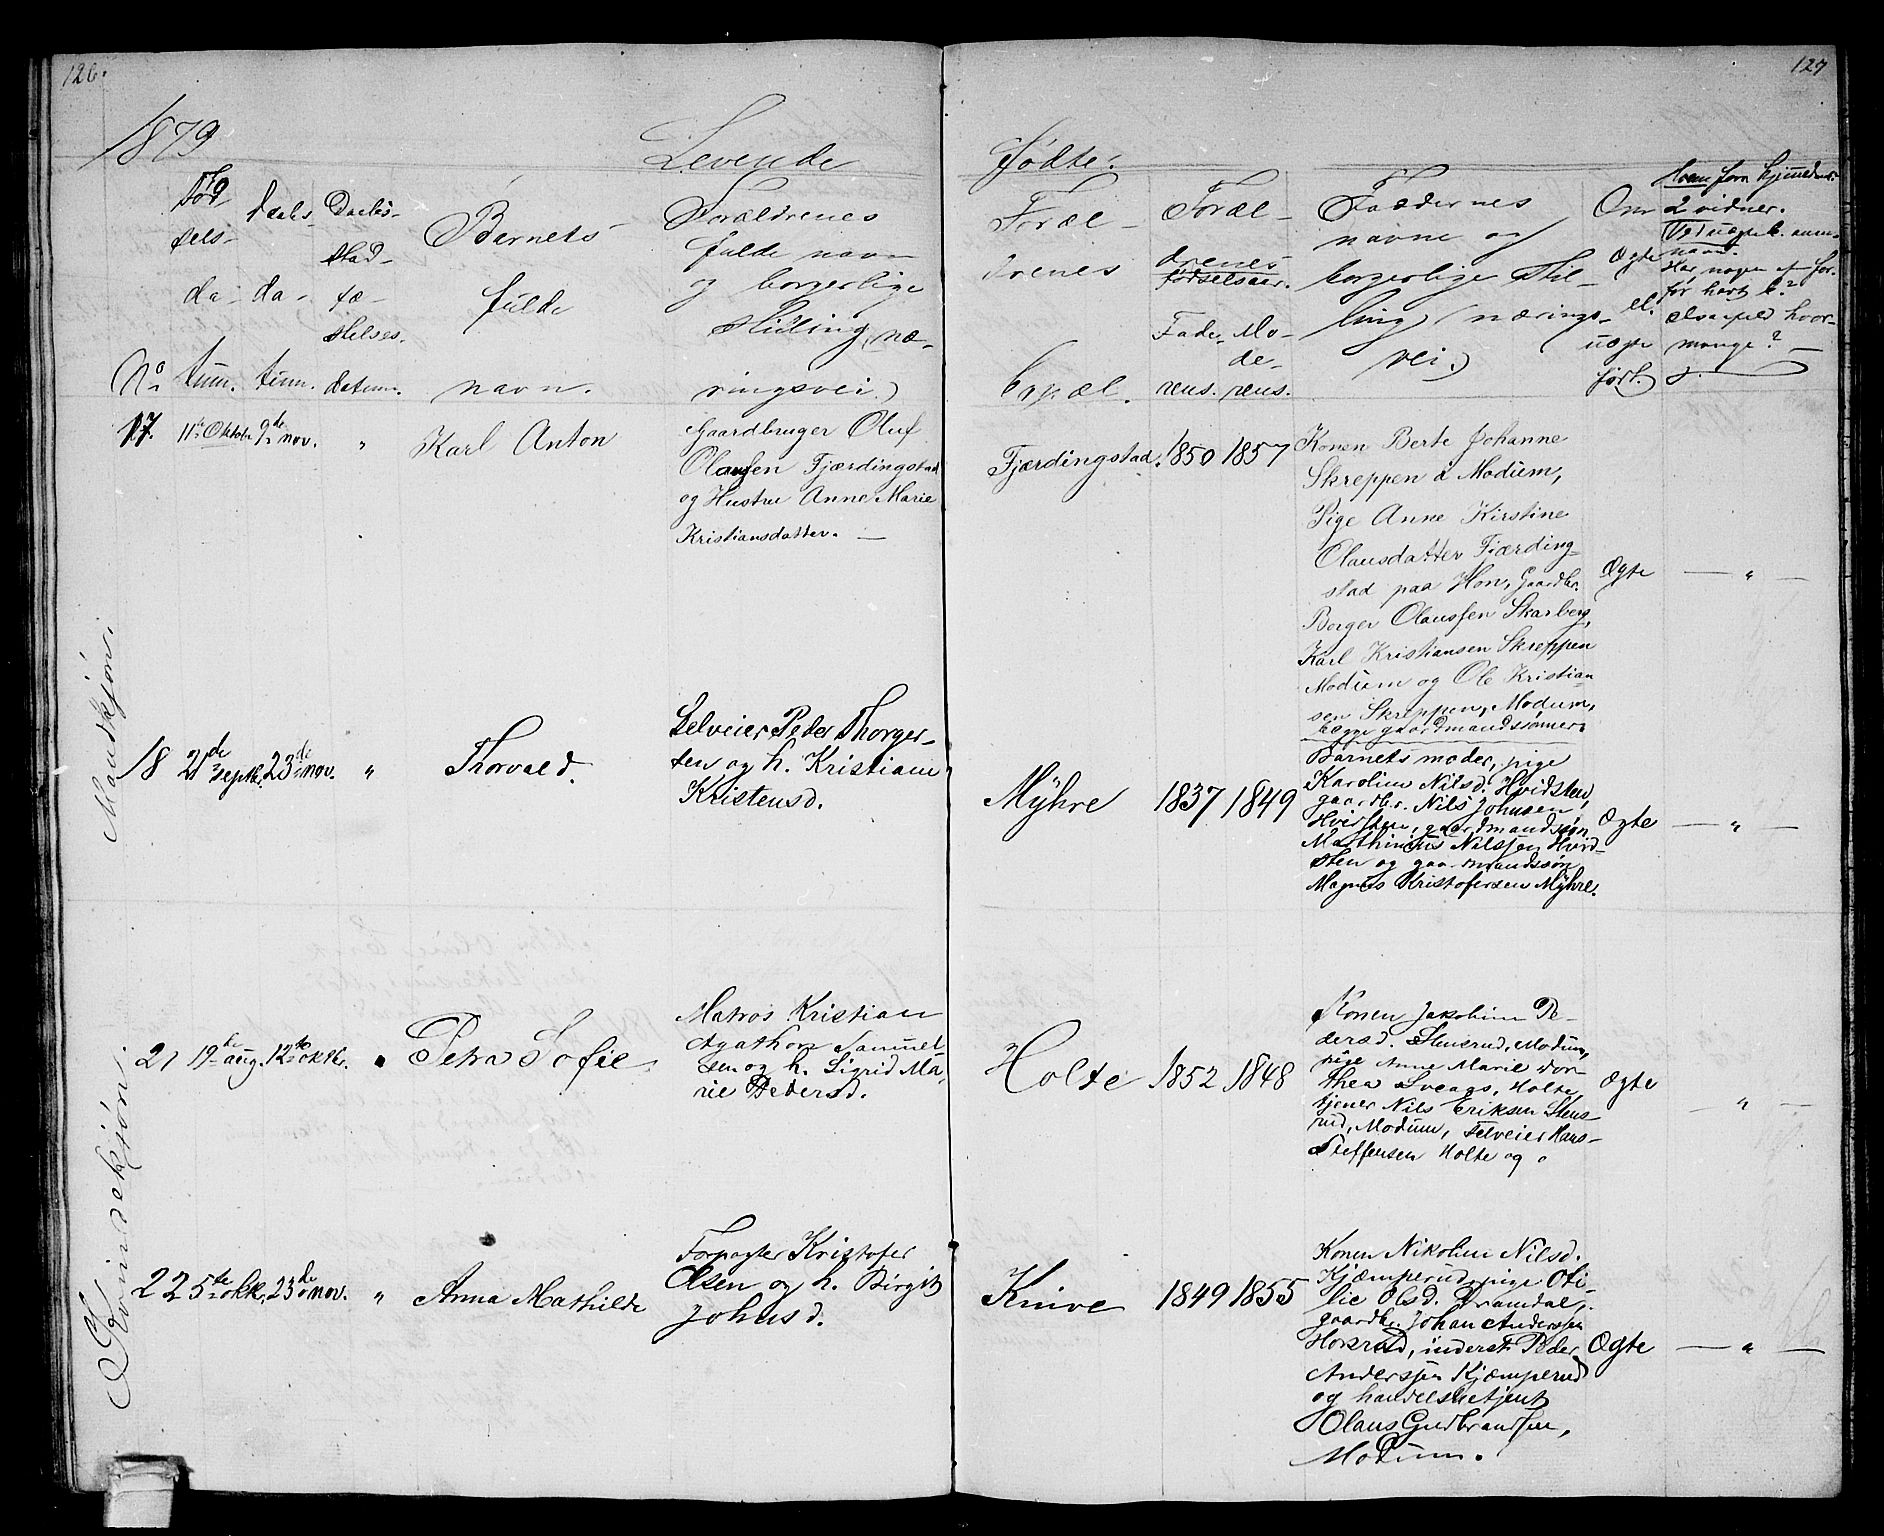 126.
127
1879
Levende
Fødte.
Fød-
sels-
da-
tum.
Daabs-
da-
tum.
Daabs-
stad-
fæ-
stelses-
datum.
No
Barnets
fulde
navn.
Forældrenes
fulde navn
og borgerlige
stilling, næ-
ringsvei.)
Foræl-
drenes
bopæl.
Foræl-
drenes
fødselsaar.
Fade-
rens.
Mo-
de-
rens.
Faddernes
navne og
borgerlige stil-
ling (nærings-
vei.)
Om
Ægte
el.
uægte
født.
2 vidner.
Ved uægte b.
navn.
Har nogen af for.
før havt b.?
hvor-
mange?
Mandkjøn.
17. 11te Oktobr 9de nov. " Karl Anton
Gaardbruger Oluf
Olaussen Fjærdingstad
og Hustru Anne Marie
Kristiansdatter. —
Fjærdingstad. 1850 1857
Konen Berte Johanne
Skreppen å Modum,
Pige Anne Kirstine
Olausdatter Fjærding-
stad paa Hon, Gaardbr.
Borger Olaussen Skarberg,
Karl Kristiansen Skreppen
Modum og Ole Kristian-
sen Skreppen, Modum,
begge gaardmandssønner.
Ægte — " —
18 21de septbr. 23de nov. " Thorvald.
Selveier Peder Thorger-
sen og h. Kristiane
Kristensd.
Myhre 1837 1849
Barnets moder, pige
Karoline Nilsd. Hvidsten,
gaardbr. Nils Johnsen
Hvidsten, gaardmandssøn
Marthinius Nilssen Hvid-
sten og gaardmandssøn
Magnus Kristofersen Myhre.
Ægte — " —
Kvindekjøn.
21 19de aug. 12te oktbr. " Petra Sofie
Matros Kristian
Agathon Samuel-
sen og h. Sigrid Ma-
rie Pedersd.
Holte 1852 1848
Konen Jakobine Pe-
dersd. Stensrud, Modum,
pige Anne Marie Dor-
thea Sveags, Holte,
tjener Nils Eriksen Stens-
rud, Modum, selveier Hans
Steffensen Holte og
Ægte — " —
22 5te okt. 23de nov. " Anna Mathilde
Forpagter Kristofer
Olsen og h. Birgit
Johnsd.
Knive 1849 1855
Konen Nikoline Nilsd.
Kjæmperud, pige Oti-
lie Olsd. Dramdal,
gaardbr. Johan Anderssen
Horsrud, inderst Peder
Anderssen Kjæmperud
og handelsbetjent
Olaus Gudbrandsen,
Modum.
Ægte — " —